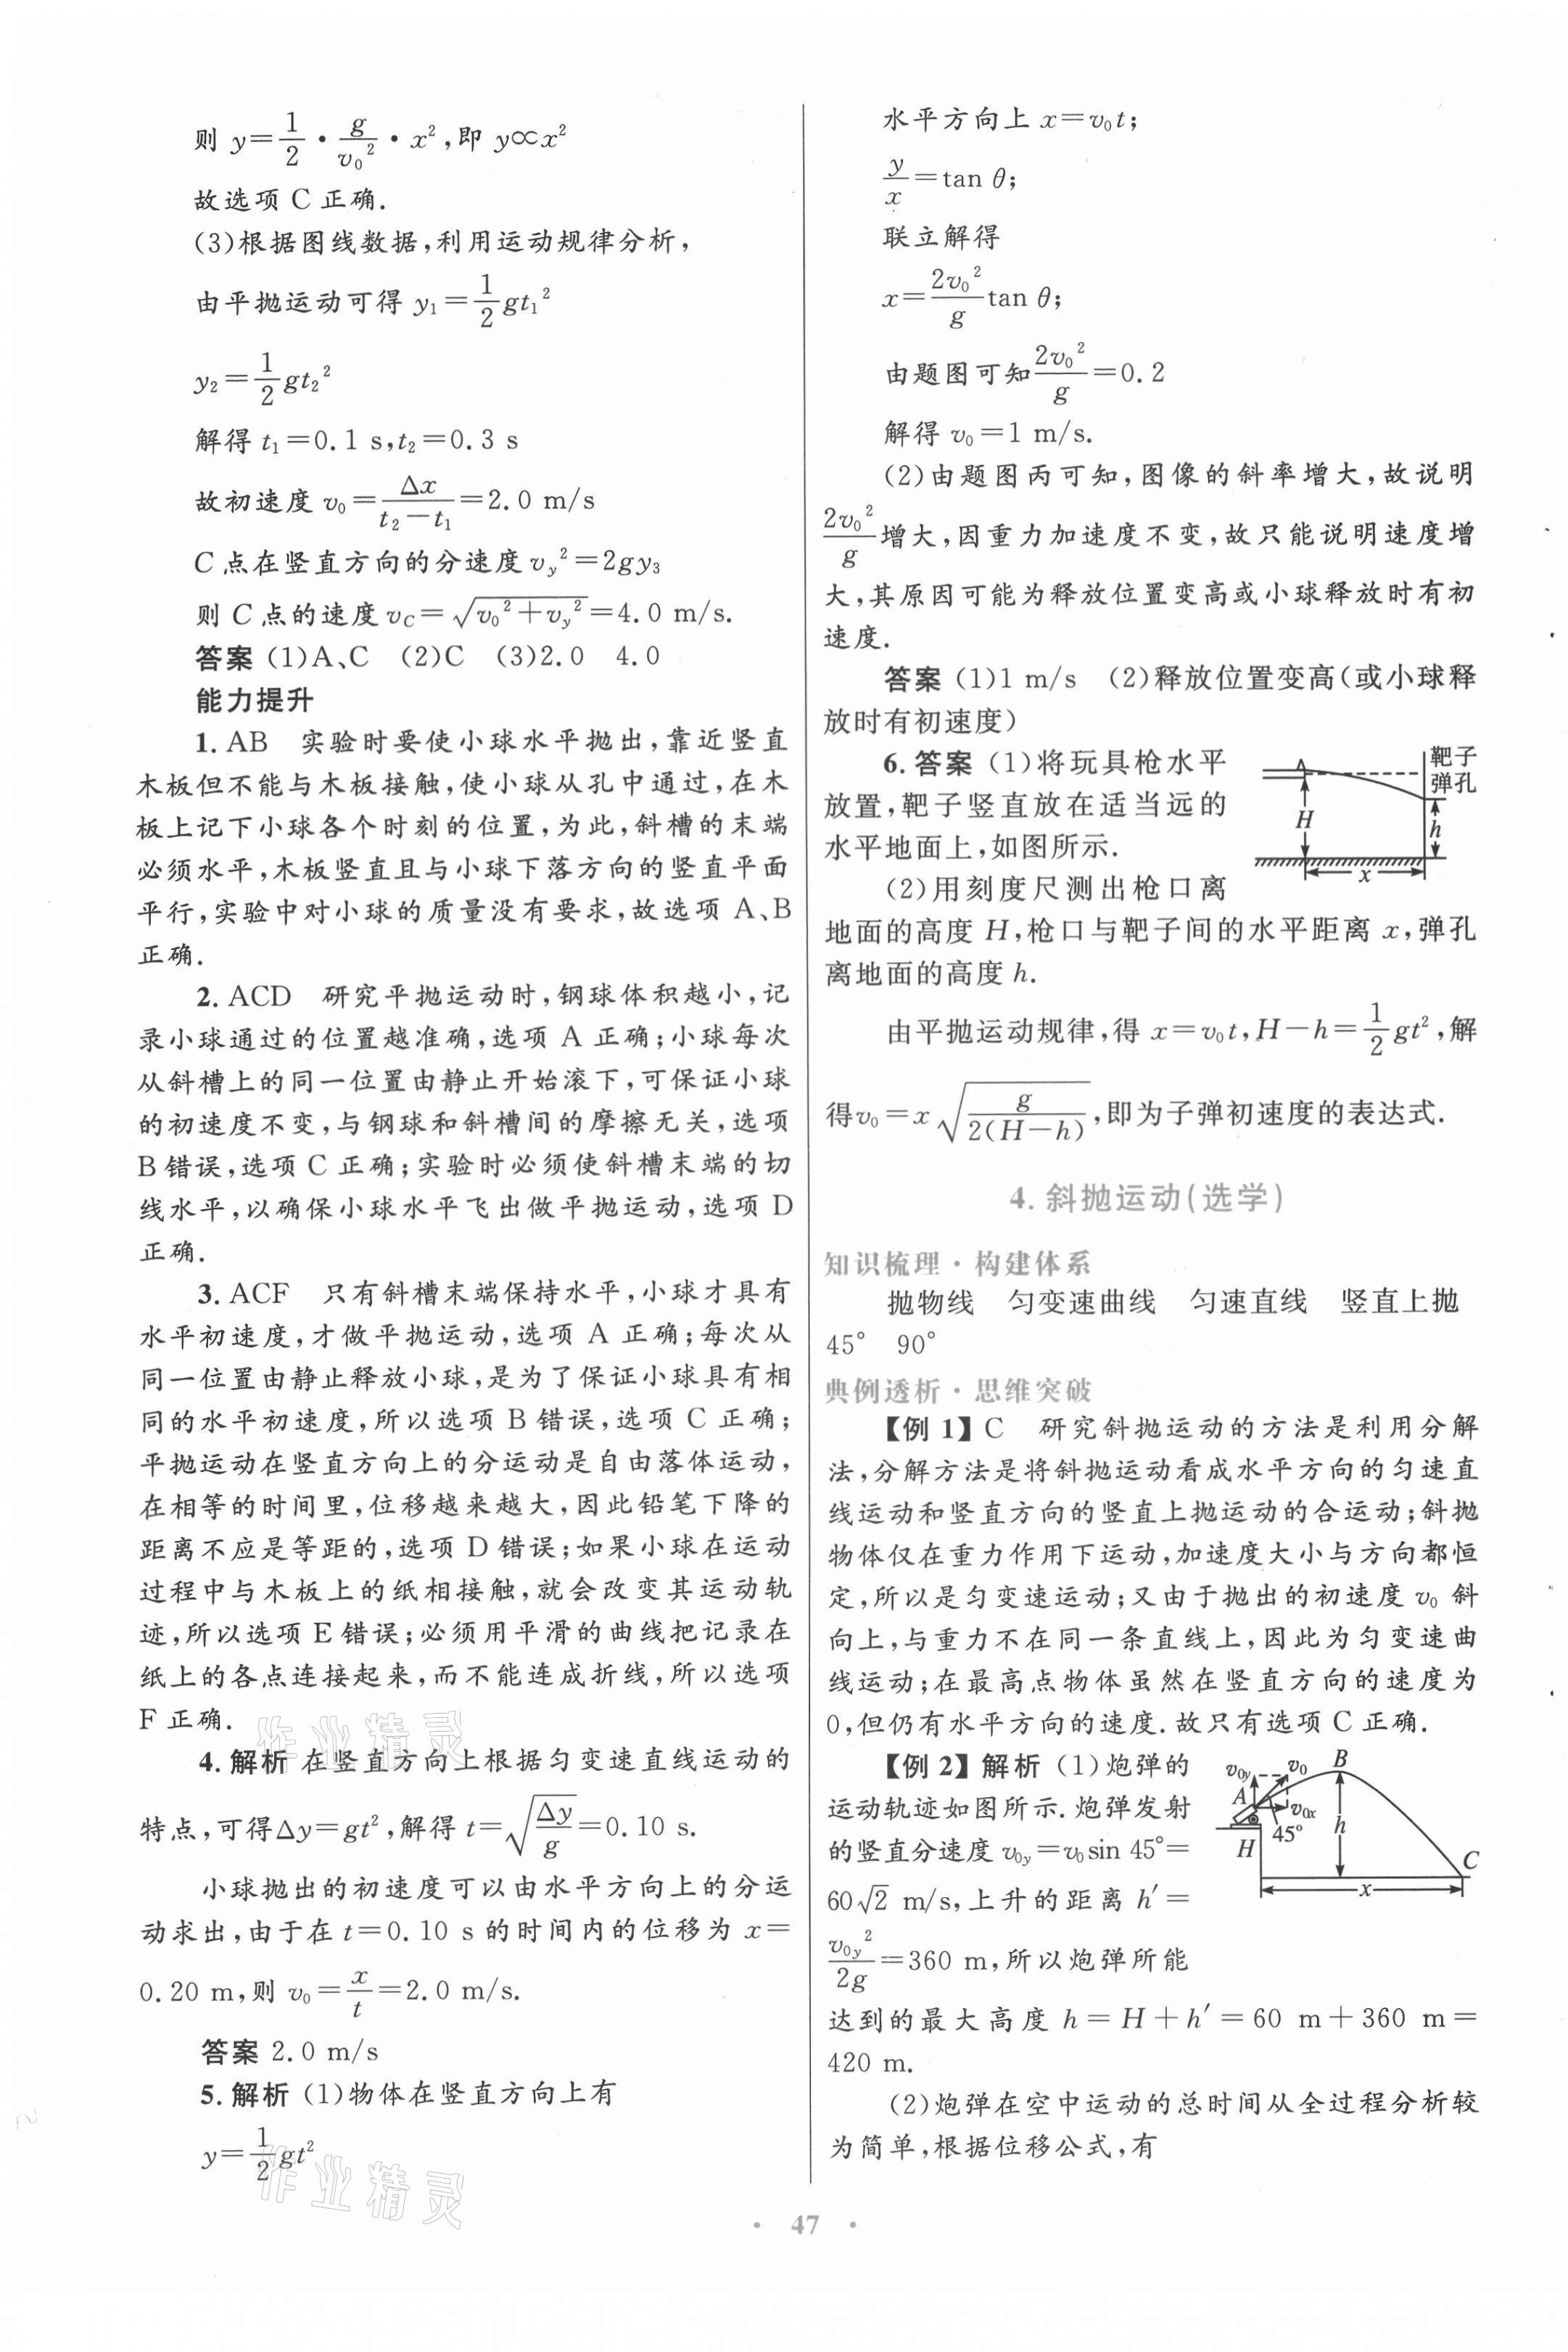 则 y=1/2·g/v₀²·x²,即 y∝x²
故选项 C 正确.
(3)根据图线数据,利用运动规律分析,
由平抛运动可得 y₁=1/2gt₁²
y₂=1/2gt₂²
解得 t₁=0.1 s,t₂=0.3 s
故初速度 v₀=Δx/(t₂-t₁)=2.0 m/s
C 点在竖直方向的分速度 v_y²=2gy₃
则 C 点的速度 v_C=√(v₀²+v_y²)=4.0 m/s.
答案 (1)A、C (2)C (3)2.0 4.0
能力提升
1. AB 实验时要使小球水平抛出,靠近竖直
木板但不能与木板接触,使小球从孔中通过,在木
板上记下小球各个时刻的位置,为此,斜槽的末端
必须水平,木板竖直且与小球下落方向的竖直平面
平行,实验中对小球的质量没有要求,故选项 A、B
正确.
2. ACD 研究平抛运动时,钢球体积越小,记
录小球通过的位置越准确,选项 A 正确;小球每次
从斜槽上的同一位置由静止开始滚下,可保证小球
的初速度不变,与钢球和斜槽间的摩擦无关,选项
B 错误,选项 C 正确;实验时必须使斜槽末端的切
线水平,以确保小球水平飞出做平抛运动,选项 D
正确.
3. ACF 只有斜槽末端保持水平,小球才具有
水平初速度,才做平抛运动,选项 A 正确;每次从
同一位置由静止释放小球,是为了保证小球具有相
同的水平初速度,所以选项 B 错误,选项 C 正确;
平抛运动在竖直方向上的分运动是自由落体运动,
在相等的时间里,位移越来越大,因此铅笔下降的
距离不应是等距的,选项 D 错误;如果小球在运动
过程中与木板上的纸相接触,就会改变其运动轨
迹,所以选项 E 错误;必须用平滑的曲线把记录在
纸上的各点连接起来,而不能连成折线,所以选项
F 正确.
4. 解析 在竖直方向上根据匀变速直线运动的
特点,可得Δy=gt²,解得 t=√(Δy/g)=0.10 s.
小球抛出的初速度可以由水平方向上的分运
动求出,由于在 t=0.10 s 的时间内的位移为 x=
0.20 m,则 v₀=x/t=2.0 m/s.
答案 2.0 m/s
5. 解析 (1)物体在竖直方向上有
y=1/2gt²
水平方向上 x=v₀t;
y/x=tan θ;
联立解得
x=2v₀²/g tan θ;
由题图可知2v₀²/g=0.2
解得 v₀=1 m/s.
(2)由题图丙可知,图像的斜率增大,故说明
2v₀²/g增大,因重力加速度不变,故只能说明速度增
大,其原因可能为释放位置变高或小球释放时有初
速度.
答案 (1)1 m/s (2)释放位置变高(或小球释
放时有初速度)
6. 答案 (1)将玩具枪水平
放置,靶子竖直放在适当远的
水平地面上,如图所示.
(2)用刻度尺测出枪口离
靶子
弹孔
H
h
x
地面的高度 H,枪口与靶子间的水平距离 x,弹孔
离地面的高度 h.
由平抛运动规律,得 x=v₀t,H-h=1/2gt²,解
得v₀=x√(g/2(H-h)),即为子弹初速度的表达式.
4. 斜抛运动(选学)
知识梳理·构建体系
抛物线 匀变速曲线 匀速直线 竖直上抛
45° 90°
典例透析·思维突破
【例 1】C 研究斜抛运动的方法是利用分解
法,分解方法是将斜抛运动看成水平方向的匀速直
线运动和竖直方向的竖直上抛运动的合运动;斜抛
物体仅在重力作用下运动,加速度大小与方向都恒
定,所以是匀变速运动;又由于抛出的初速度 v₀ 斜
向上,与重力不在同一条直线上,因此为匀变速曲
线运动;在最高点物体虽然在竖直方向的速度为
0,但仍有水平方向的速度.故只有选项 C 正确.
【例 2】解析 (1)炮弹的
运动轨迹如图所示.炮弹发射
的竖直分速度 v₀y=v₀sin 45°=
60√2 m/s,上升的距离 h′=
v₀y²/2g=360 m,所以炮弹所能
v₀y v₀ B
A v₀x
45° h
H C
x
达到的最大高度 h=H+h′=60 m+360 m=
420 m.
(2)炮弹在空中运动的总时间从全过程分析较
为简单,根据位移公式,有
· 47 ·
作业精灵
作业精灵